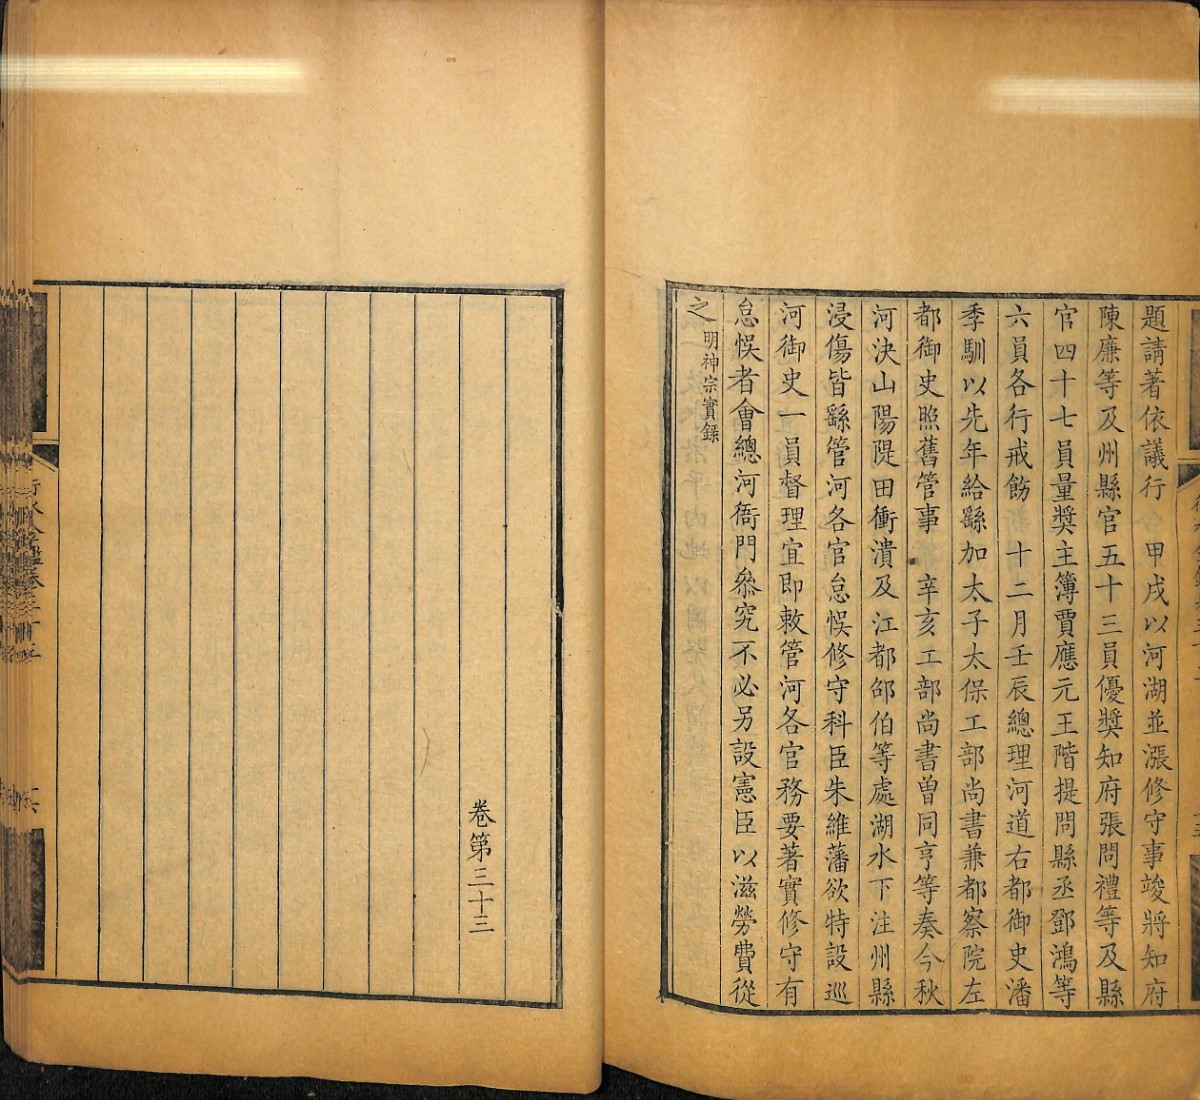 題請著依議行　甲戌以河湖並漲修守事竣將知府
陳廉等及州縣官五十三員優奬知府張問禮等及縣
官四十七員量奬主簿賈應元王階提問縣丞鄧鴻等
六員各行戒飭　十二月壬辰總理河道右都御史潘
季馴以先年給繇加太子太保工部尚書兼都察院左
都御史照舊管事　辛亥工部尚書曾同亨等奏今秋
河決山陽隄田衝潰及江都邵伯等處湖水下注州縣
浸傷皆繇管河各官怠悞修守科臣朱維藩欲特設巡
河御史一員督理宜即敕管河各官務要著實修守有
怠悞者會總河衙門叅究不必另設憲臣以滋勞費從
之明神宗實錄
卷第三十三
行水金鑑卷三十三